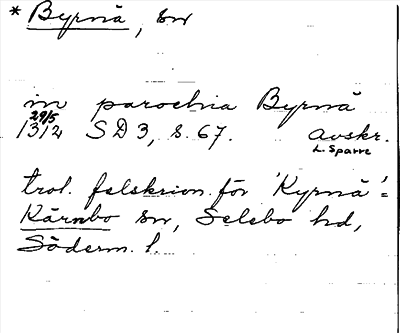 * Byrnä, sn
in parochia Byrnä
29/5
1312 SD 3, s. 67. avskr.
L. Sparre
trol. felskrivn. för 'Kyrnä' =
Kärnbo sn, Selebo hd,
Söderm. l.